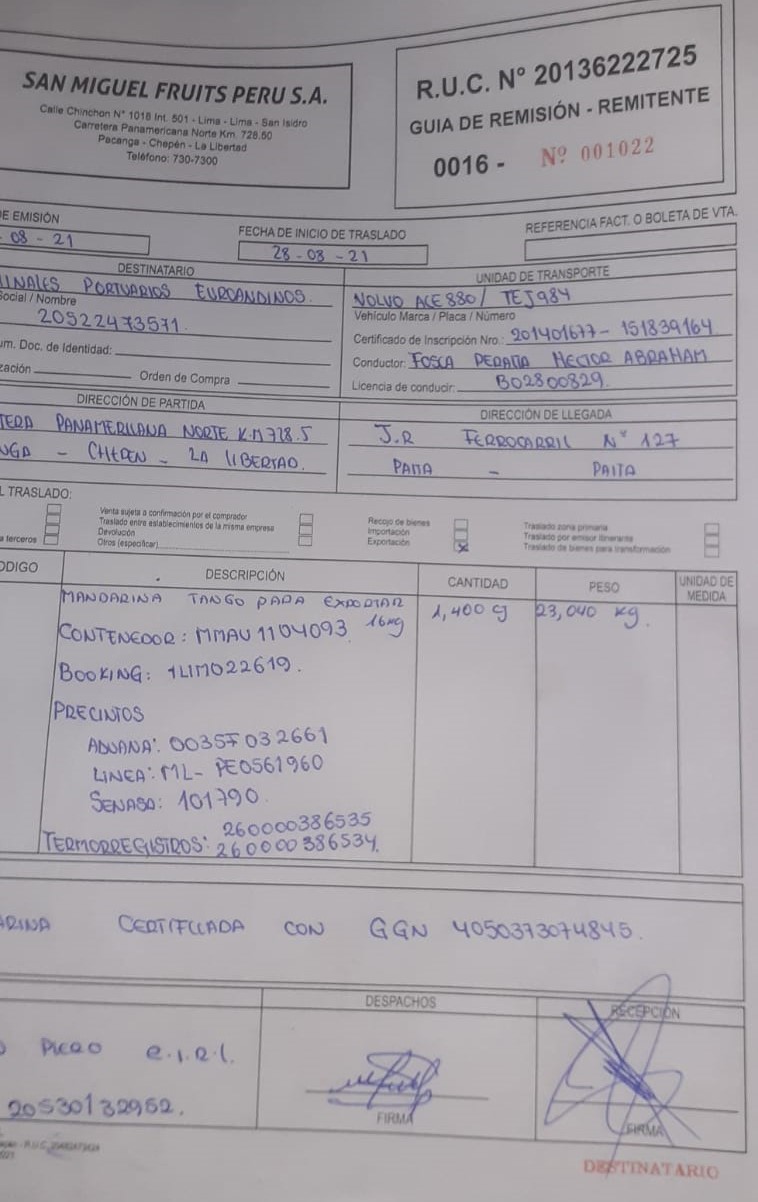 SAN MIGUEL FRUITS PERU S.A.
Calle Chinchon N° 1018 Int. 501 - Lima - Lima - San Isidro
Carretera Panamericana Norte Km. 728.50
Pacanga - Chepén - La Libertad
Teléfono: 730-7300
R.U.C. N° 20136222725
GUIA DE REMISIÓN - REMITENTE
0016 - Nº 001022
E EMISIÓN
08 - 21
FECHA DE INICIO DE TRASLADO
28 - 08 - 21
REFERENCIA FACT. O BOLETA DE VTA.
DESTINATARIO
INALES PORTUARIOS EUROANDINOS.
Social / Nombre
20522473571.
um. Doc. de Identidad:
zación Orden de Compra
UNIDAD DE TRANSPORTE
VOLVO ACE880 / TEJ984
Vehículo Marca / Placa / Número
Certificado de Inscripción Nro.: 201401677 - 151839164
Conductor: FOSCA PERALTA HECTOR ABRAHAM
Licencia de conducir: B02800829.
DIRECCIÓN DE PARTIDA
TERA PANAMERICANA NORTE K.M 728.5
NGA - CHEPEN - LA LIBERTAD.
DIRECCIÓN DE LLEGADA
J.R FERROCARRIL N° 127
PAITA - PAITA
L TRASLADO:
a terceros
Venta sujeta a confirmación por el comprador
Traslado entre establecimientos de la misma empresa
Devolución
Otros (especificar)
Recojo de bienes
Importación
Exportación X
Traslado zona primaria
Traslado por emisor itinerante
Traslado de bienes para transformación
ODIGO DESCRIPCIÓN CANTIDAD PESO UNIDAD DE MEDIDA
MANDARINA TANGO PARA EXPORTAR 1,400 cj 23,040 kg.
CONTENEDOR: MMAU 1104093 16kg
BOOKING: 1LIM022619.
PRECINTOS
ADUANA: 0035F032661
LINEA: ML- PE0561960
SENASA: 101790.
TERMORREGISTROS: 260000386535
260000386534.
ARINA CERTIFICADA CON GGN 4050373074845.
O PIERO E.I.R.L.
20530132952.
DESPACHOS
FIRMA
RECEPCIÓN
FIRMA
DESTINATARIO